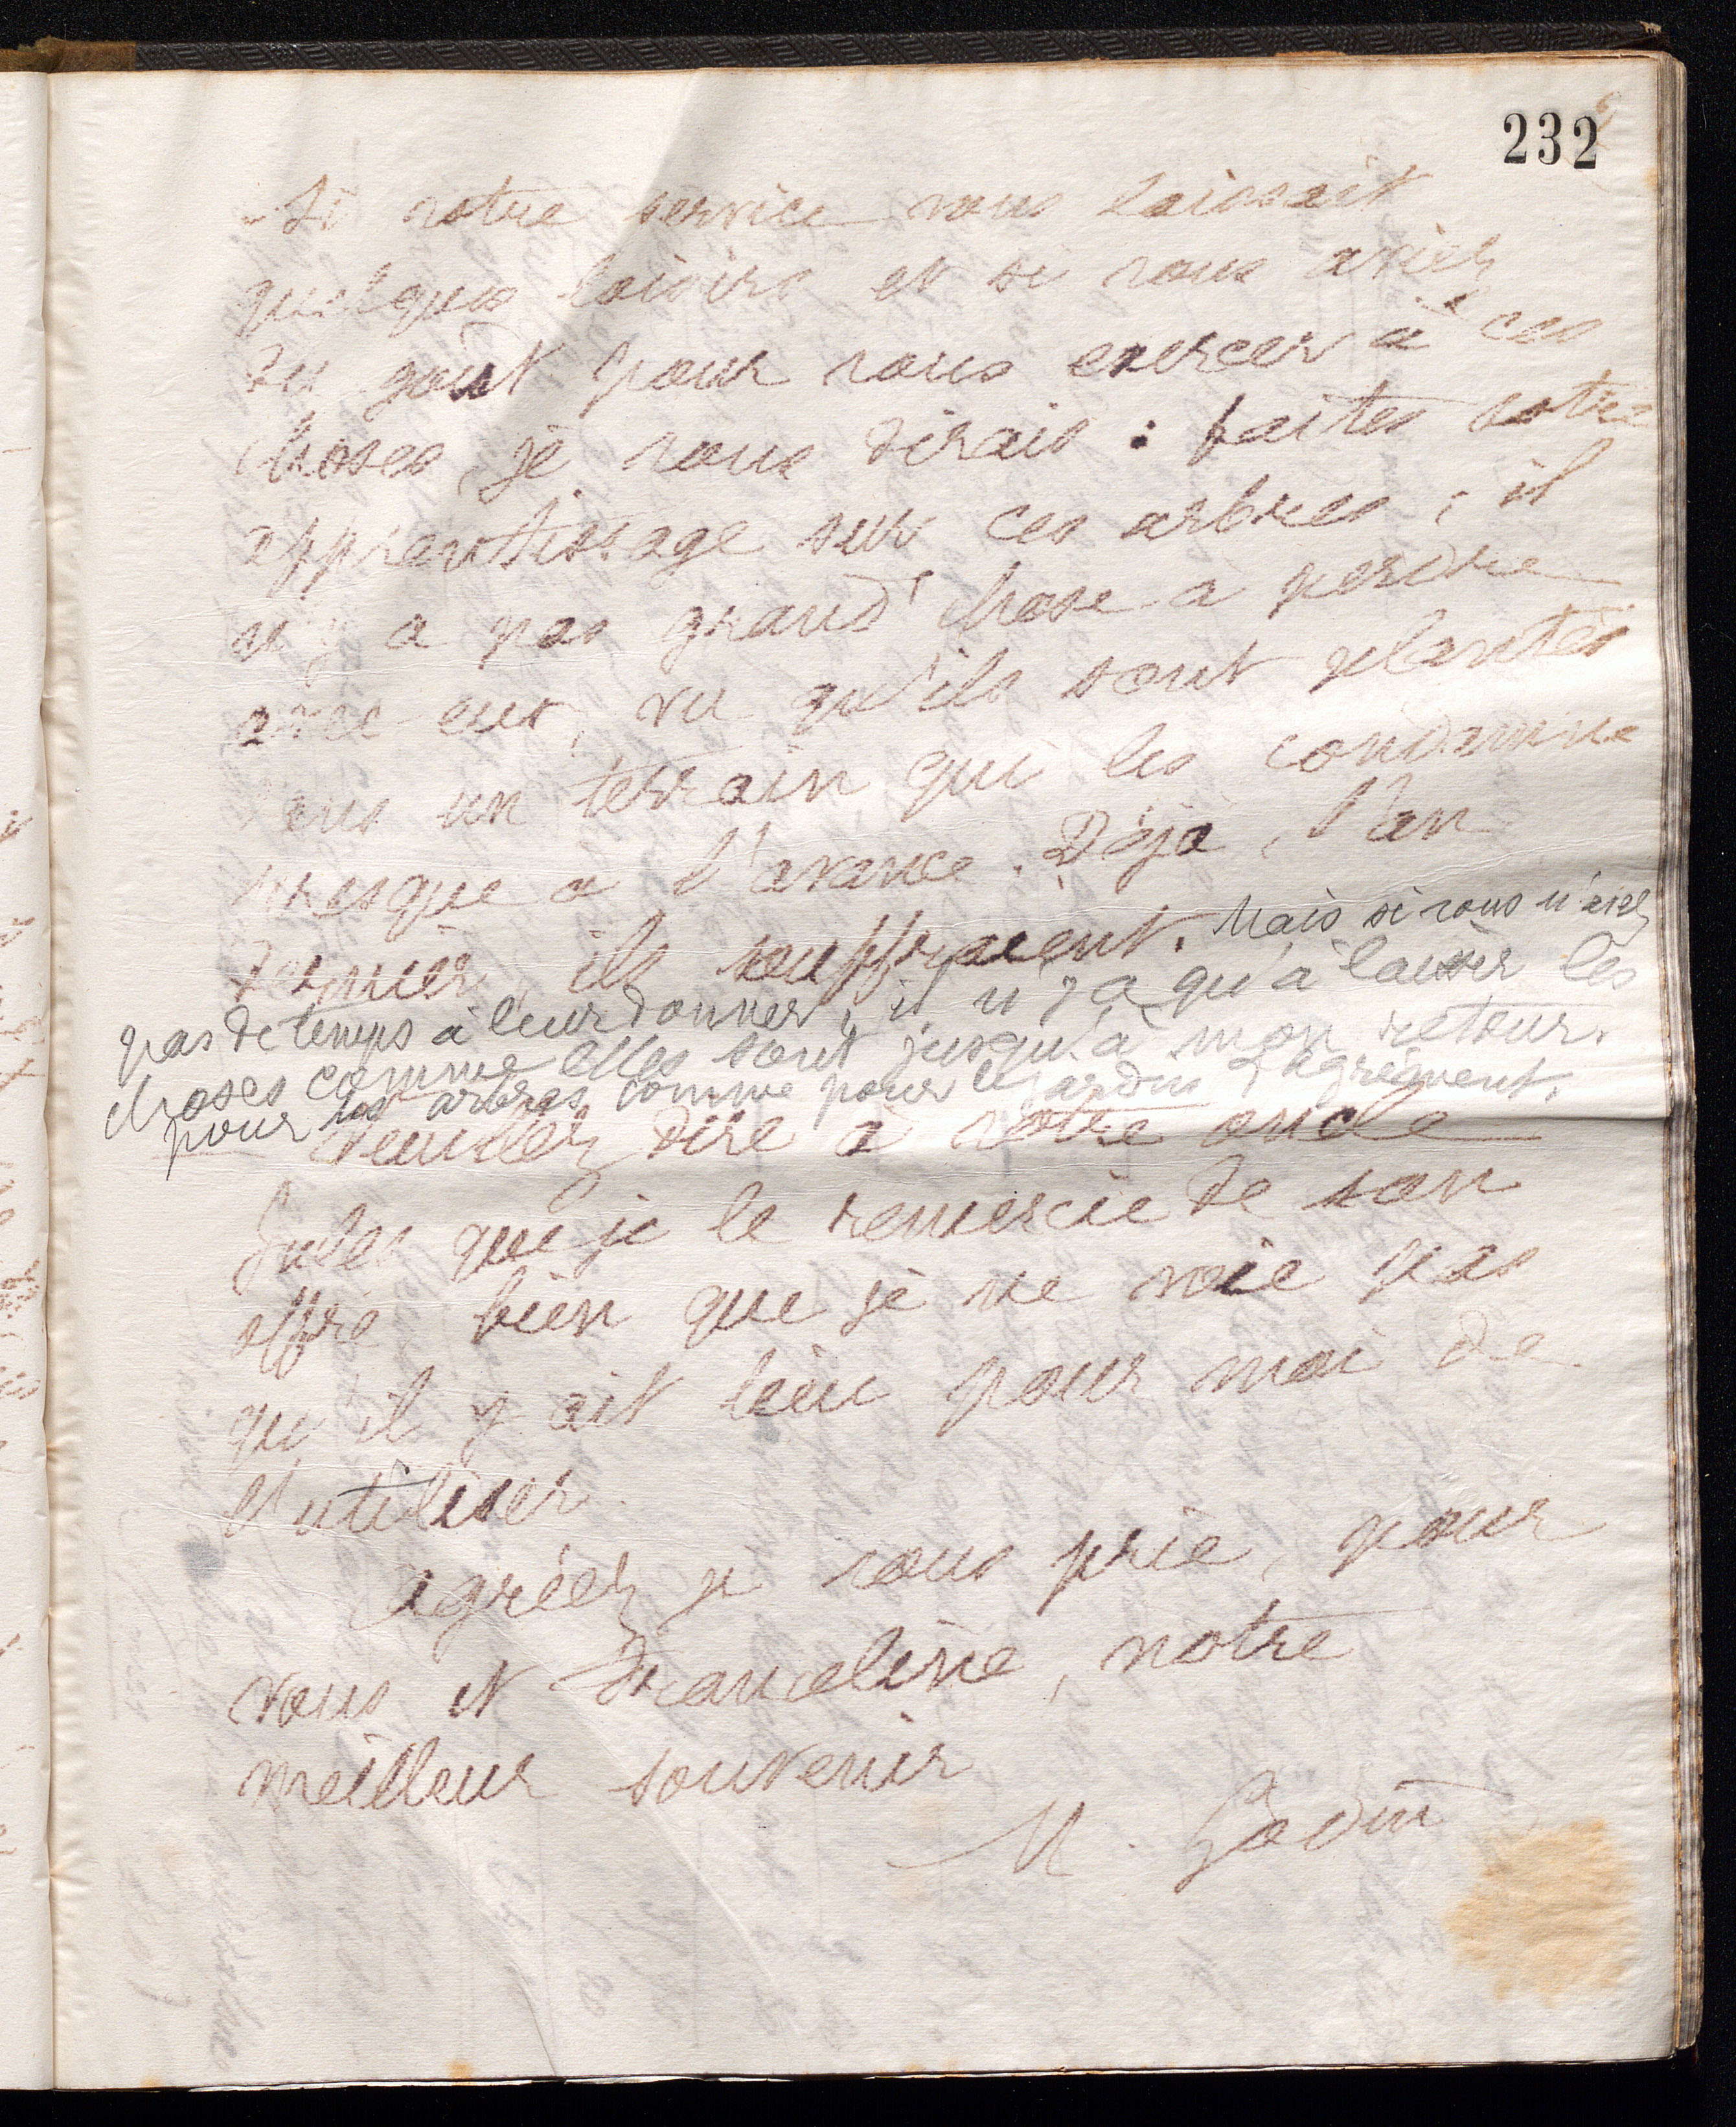 232
Si votre service vous laissait
quelques loisirs et si vous aviez
du goût pour vous exercer à ces
choses, je vous dirais : faites votre
apprentissage sur ces arbres ; il
n'y a pas grand'chose à perdre
avec eux, vu qu'ils sont plantés
dans un terrain qui les condamne
presque à l'avance. Déjà, l'an
dernier, ils souffraient. Mais si vous n'avez
pas de temps à leur donner, il n'y a qu'à laisser les
choses comme elles sont jusqu'à mon retour.
pour les arbres comme pour le jardin d'agrément.
Veuillez dire à votre oncle
Jules que je le remercie de son
offre, bien que je ne voie pas
qu'il y ait lieu pour moi de
l'utiliser.
Agréez, je vous prie, pour
vous et Franceline, notre
meilleur souvenir
M. Godin